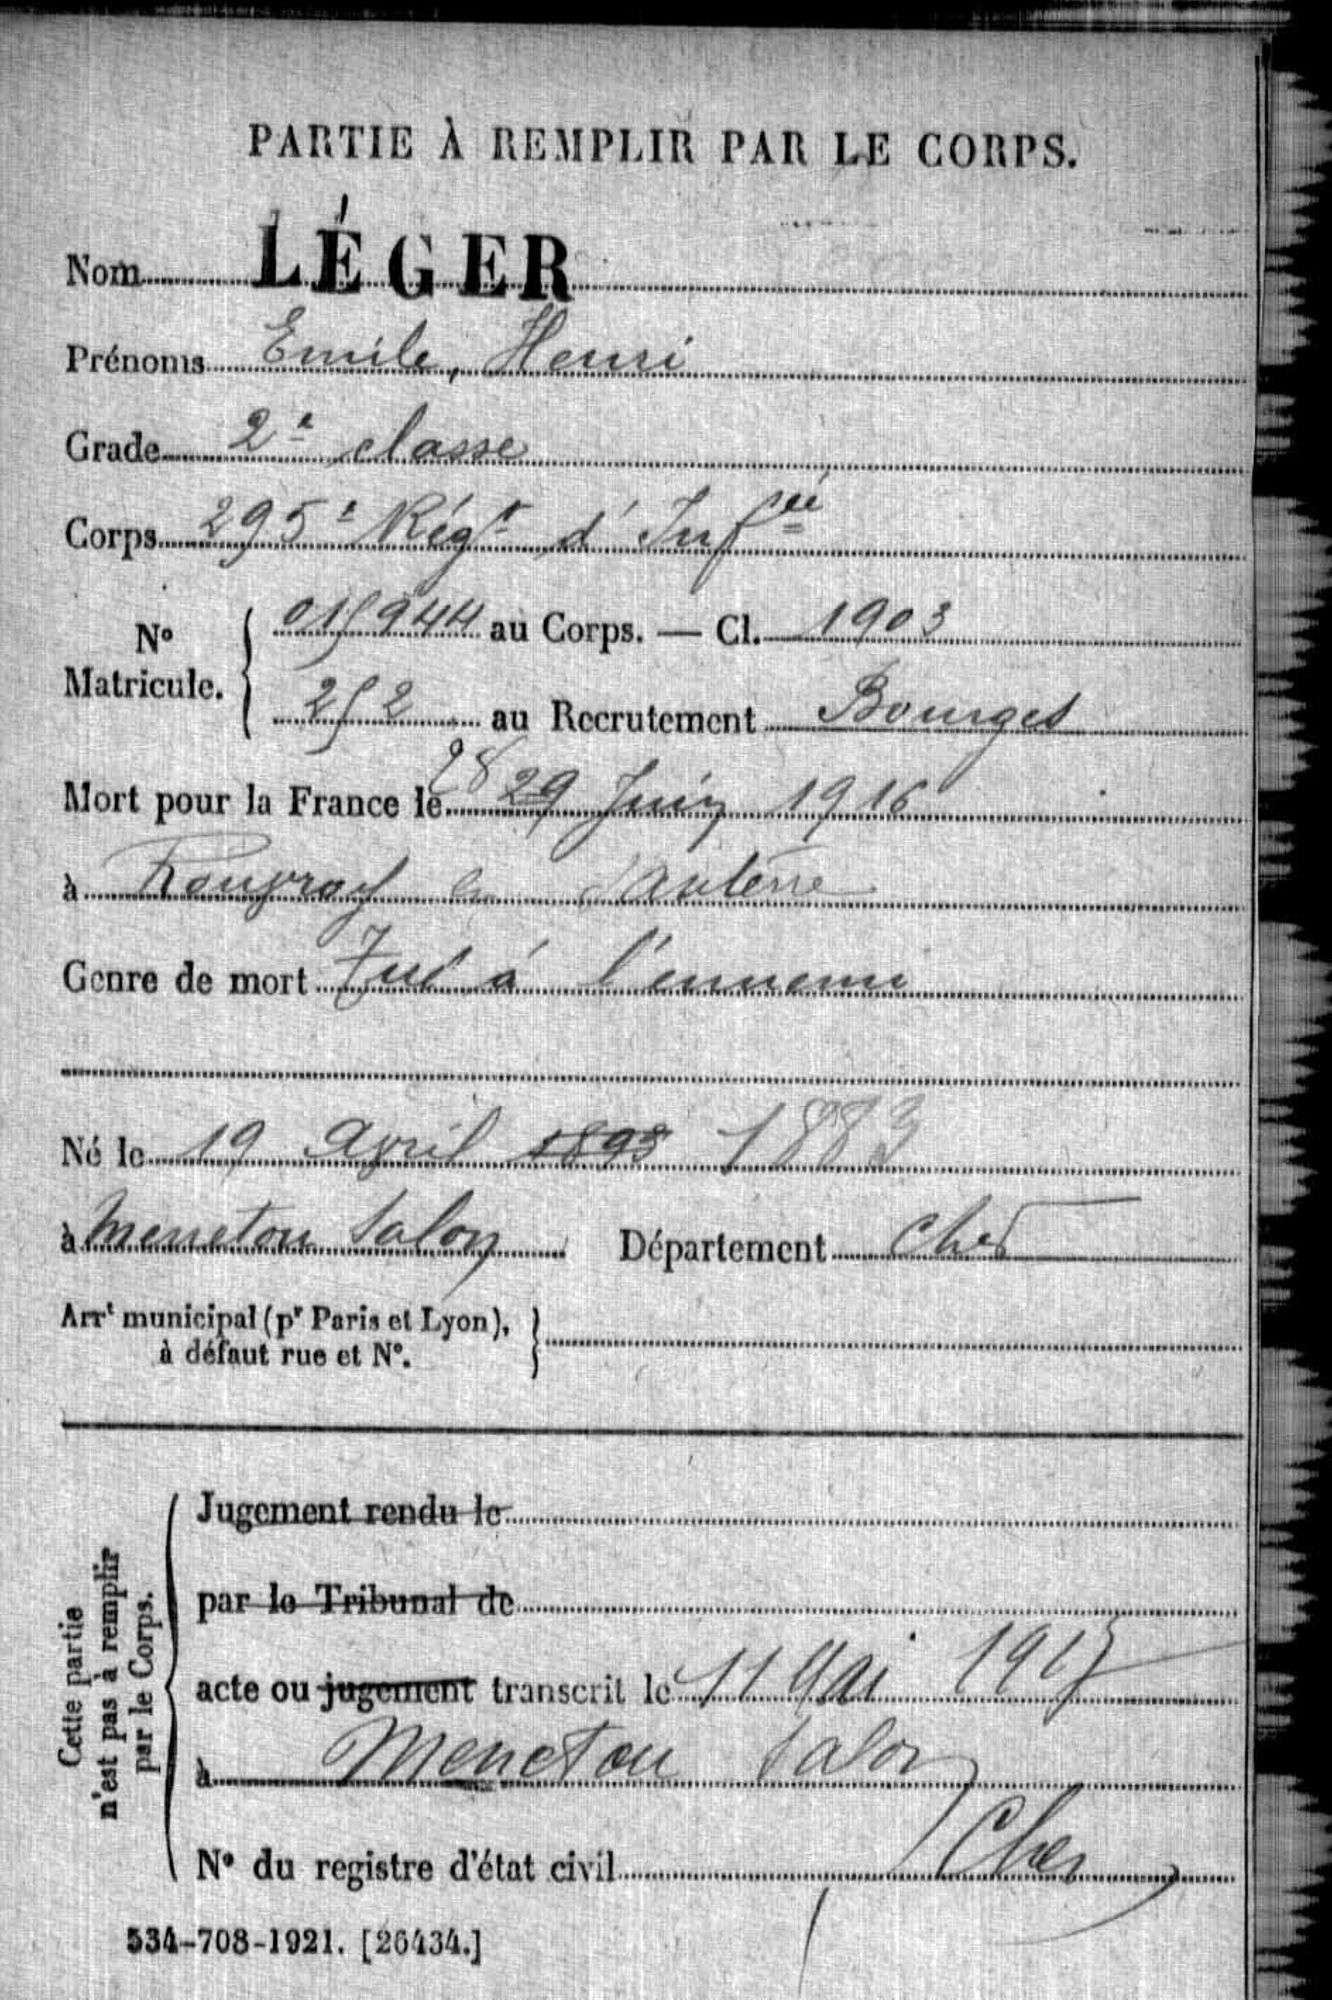 PARTIE À REMPLIR PAR LE CORPS.
Nom LÉGER
Prénoms Emile, Henri
Grade 2e classe
Corps 295e Régt d'Infrie
No Matricule. 015944 au Corps. — Cl. 1903
252 au Recrutement Bourges
Mort pour la France le 28 29 Juin 1916
à Rouvroy en Santerre
Genre de mort Tué à l'ennemi
Né le 19 Avril 1893 1883
à Menetou Salon Département Cher
Arrt municipal (pr Paris et Lyon),
à défaut rue et No.
Cette partie
n'est pas à remplir
par le Corps.
Jugement rendu le
par le Tribunal de
acte ou jugement transcrit le 11 Mai 1917
à Menetou Salon
No du registre d'état civil Cher
534-708-1921. [26434.]